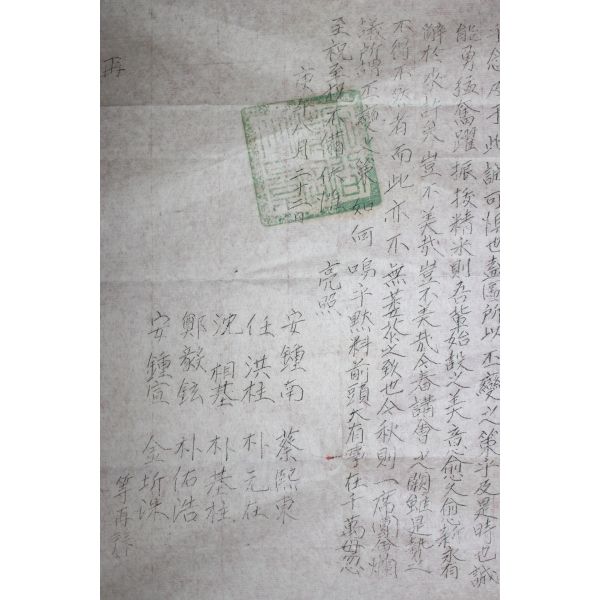 念及于此詎可惧也盍圖所以不變之策乎及是時也誠
能勇猛奮躍振拔精水則吾輩始設之美意愈久愈新看
辭於來許矣豈不美哉豈不美哉今春講會之闕雖是勢之
不得不然者而此亦不無萎茶之致也今秋則一席團會爛
議所謂不變之策如何嗚乎默料前頭大有事在千萬毋忽
至祝至祝不備伏惟
亮照
庚午八月二十三日
安鍾南 蔡熙東
任洪柱 朴元在
沈相基 朴基柱
鄭毅鉉 朴佑浩
安鍾宣 金圻洙
等再拜
再